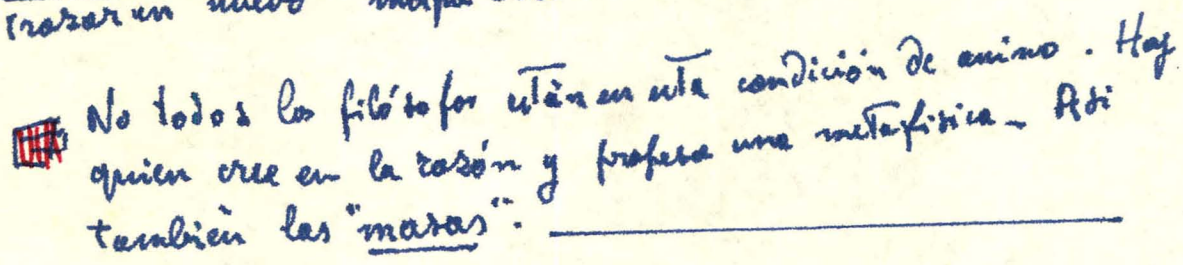 trazar un nuevo
No todos los filósofos están en esta condición de animo. Hay
quien cree en la razón y profesa una metafísica. Asi
también las "masas".